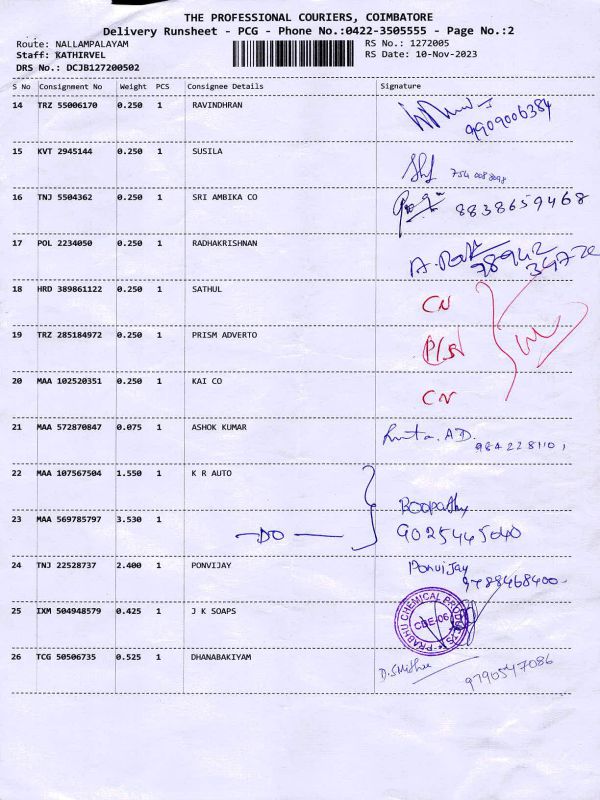 THE PROFESSIONAL COURIERS, COIMBATORE
Delivery Runsheet - PCG - Phone No.:0422-3505555 - Page No.:2
Route: NALLAMPALAYAM RS No.: 1272005
Staff: KATHIRVEL RS Date: 10-Nov-2023
DRS No.: DCJB127200502
S No Consignment No Weight PCS Consignee Details Signature
14 TRZ 55006170 0.250 1 RAVINDHRAN
9909006384
15 KVT 2945144 0.250 1 SUSILA
16 TNJ 5504362 0.250 1 SRI AMBIKA CO
8838659468
17 POL 2234050 0.250 1 RADHAKRISHNAN
18 HRD 389861122 0.250 1 SATHUL
CN
19 TRZ 285184972 0.250 1 PRISM ADVERTO
20 MAA 102520351 0.250 1 KAI CO
CN
21 MAA 572870847 0.075 1 ASHOK KUMAR
22 MAA 107567504 1.550 1 K R AUTO
Boopathy
23 MAA 569785797 3.530 1
-DO- 9025445040
24 TNJ 22528737 2.400 1 PONVIJAY Ponvijay
9788468400
25 IXM 504948579 0.425 1 J K SOAPS
PRABHU CHEMICAL PRODUCTS
CBE-06
26 TCG 50506735 0.525 1 DHANABAKIYAM
9790547086